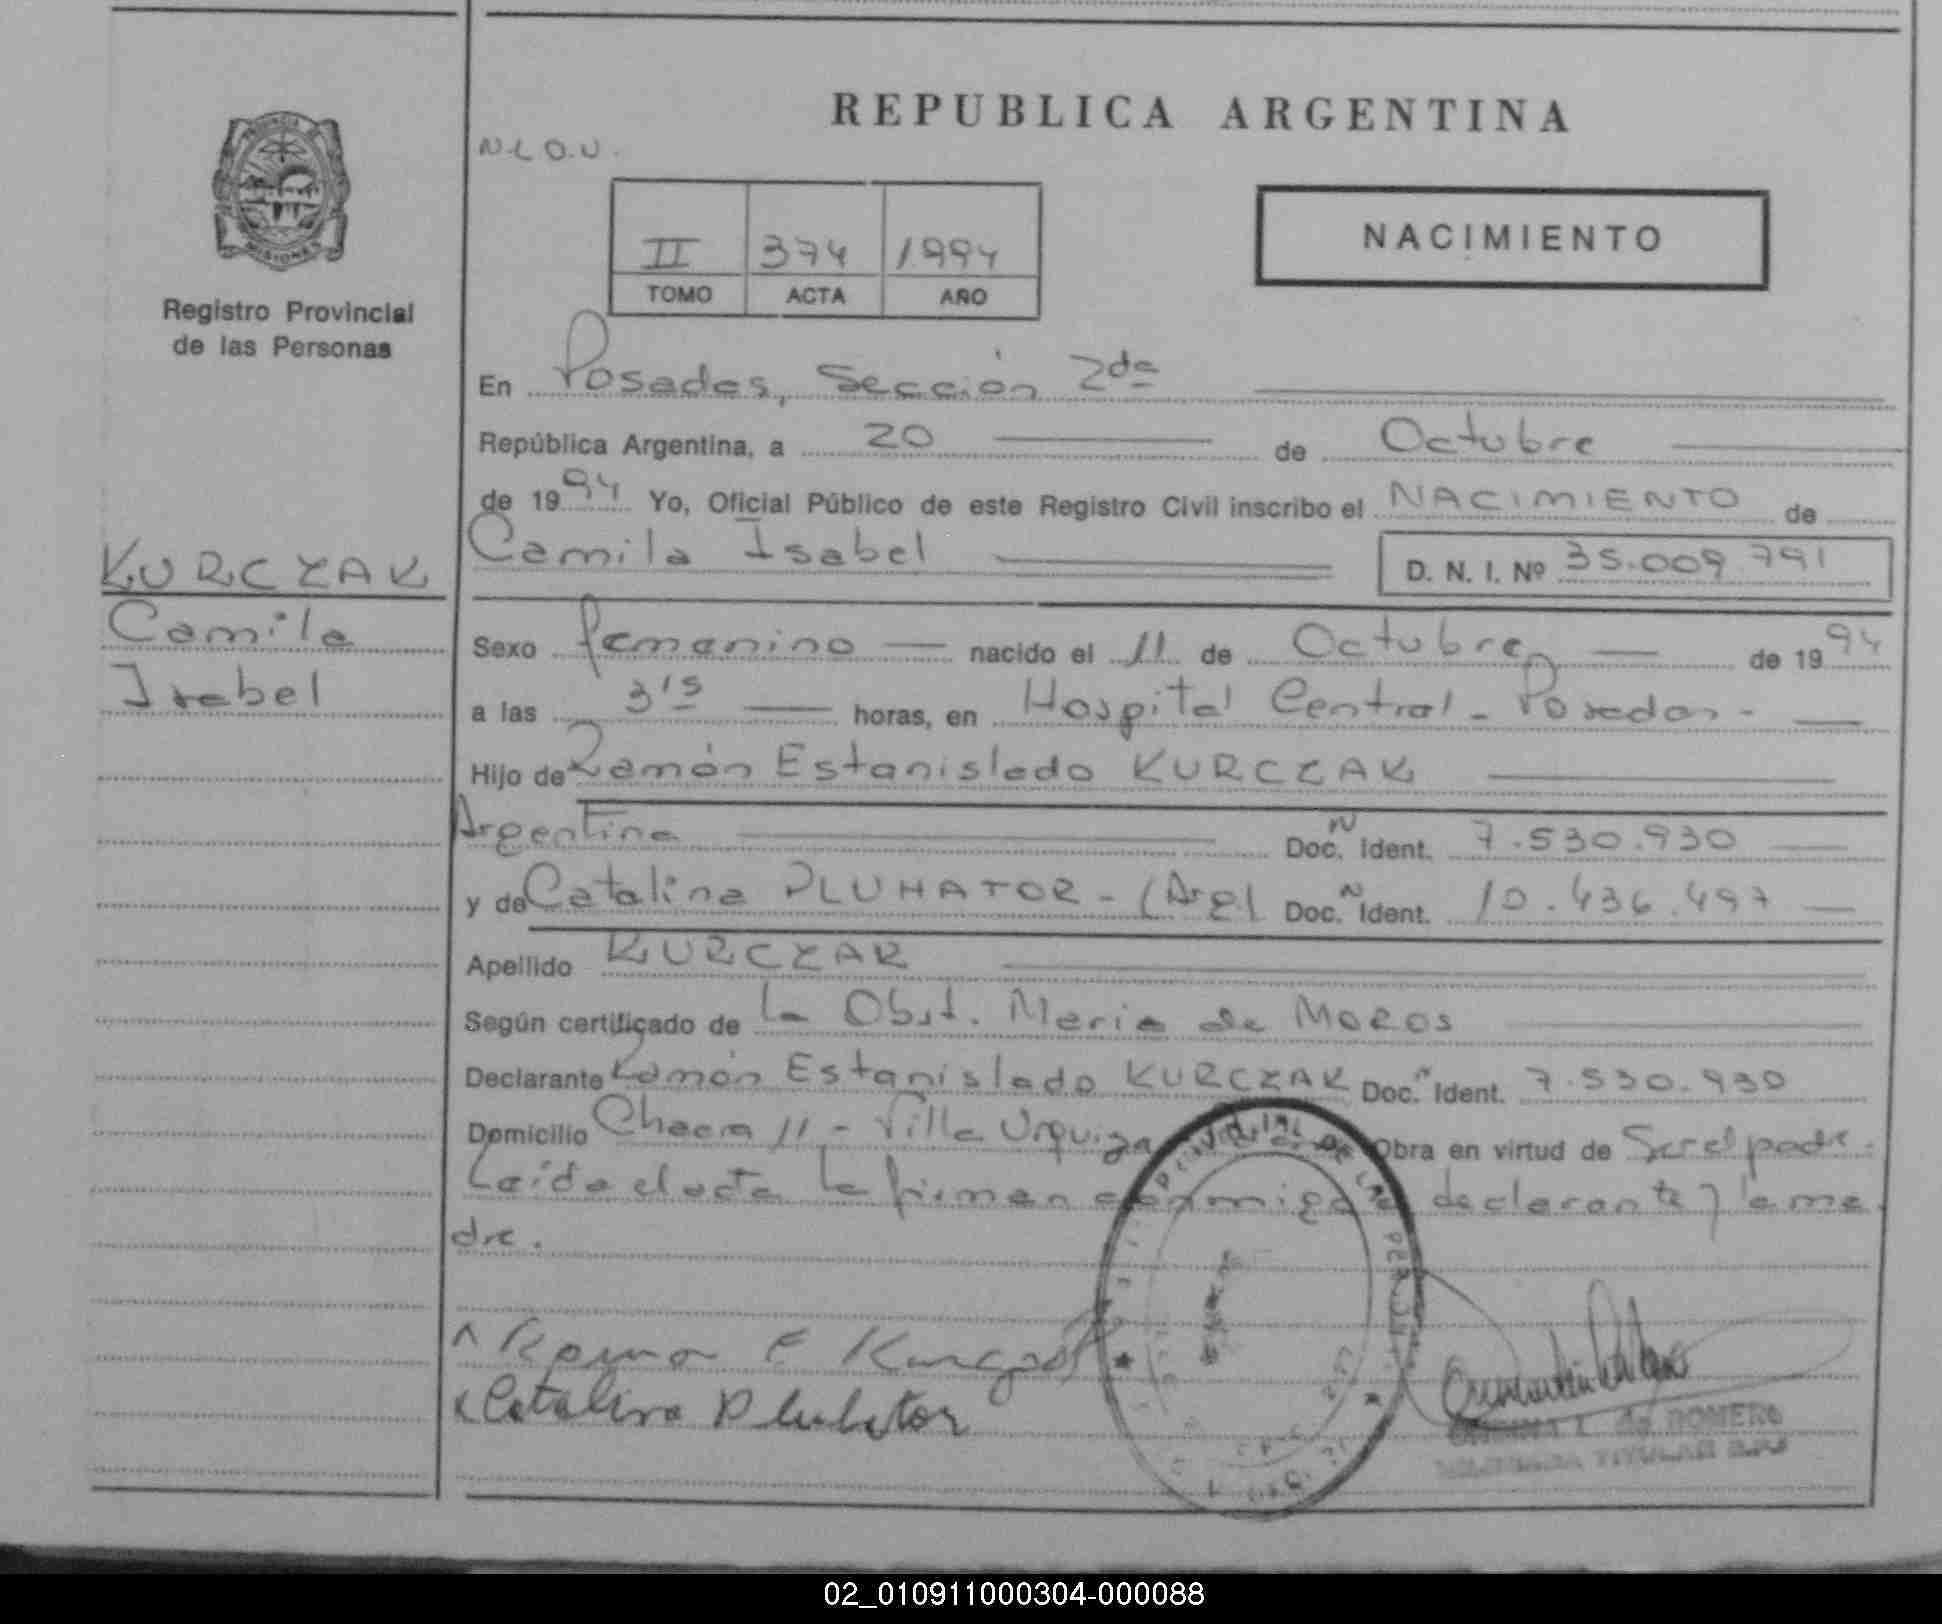 REPUBLICA ARGENTINA
N.L.O.U.
NACIMIENTO
II 374 1994
TOMO ACTA AÑO
PROVINCIA DE MISIONES
Registro Provincial
de las Personas
KURCZAK
Camila
Isabel
En Posadas, Sección 2da
República Argentina, a 20 de Octubre
de 1994 Yo, Oficial Público de este Registro Civil inscribo el NACIMIENTO de
Camila Isabel D. N. I. Nº 35.009.791
Sexo femenino nacido el 11 de Octubre de 1994
a las 3'15 horas, en Hospital Central - Posadas -
Hijo de Ramón Estanislado KURCZAK
Argentina Doc. Ident. 7.530.930
y de Catalina PLUHATOR - (Arg) Doc. Ident. 10.436.497
Apellido KURCZAK
Según certificado de la Obst. Maria de MOROS
Declarante Ramón Estanislado KURCZAK Doc. Ident. 7.530.930
Domicilio Chacra 11 - Villa Urquiza Obra en virtud de Ser el padre.
Leída el acta la firman conmigo declarante y la ma
dre.
Catalina Pluhator
de ROMERO
TITULAR
02_010911000304-000088